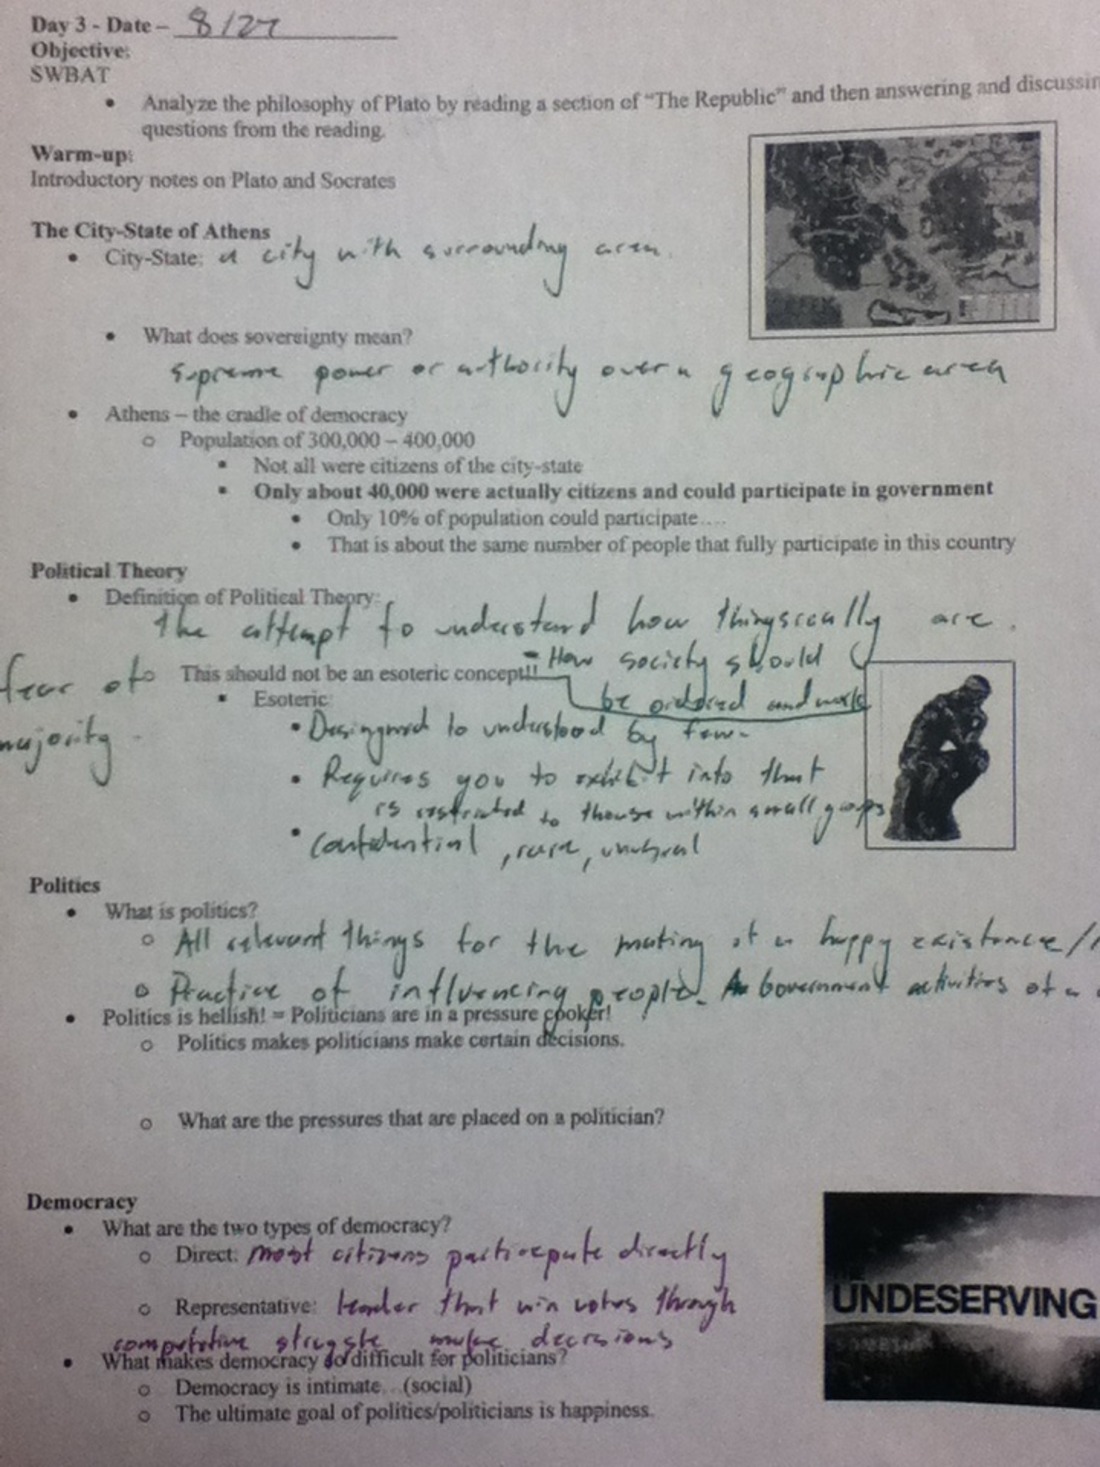 Day 3 - Date – 8/27
Objective:
SWBAT
• Analyze the philosophy of Plato by reading a section of "The Republic" and then answering and discussin
questions from the reading.
Warm-up:
Introductory notes on Plato and Socrates
The City-State of Athens
• City-State: a city with surrounding area.
• What does sovereignty mean?
supreme power or authority over a geographic area
• Athens – the cradle of democracy
o Population of 300,000 – 400,000
▪ Not all were citizens of the city-state
▪ Only about 40,000 were actually citizens and could participate in government
• Only 10% of population could participate....
• That is about the same number of people that fully participate in this country
Political Theory
• Definition of Political Theory:
The attempt to understand how things really are.
- How society should
fear of o This should not be an esoteric concept!!
be ordered and work
majority.
▪ Esoteric:
• Designed to understood by few.
• Requires you to exhibit into that
is restricted to those within small groups
• confidential, rare, unusual
Politics
• What is politics?
o All relevant things for the making of a happy existence/
o Practice of influencing people. Government activities of a
• Politics is hellish! = Politicians are in a pressure cooker!
o Politics makes politicians make certain decisions.
o What are the pressures that are placed on a politician?
Democracy
• What are the two types of democracy?
o Direct: most citizens participate directly
UNDESERVING
o Representative: leader that win votes through
competative struggle make decisions
• What makes democracy so difficult for politicians?
o Democracy is intimate...(social)
o The ultimate goal of politics/politicians is happiness.